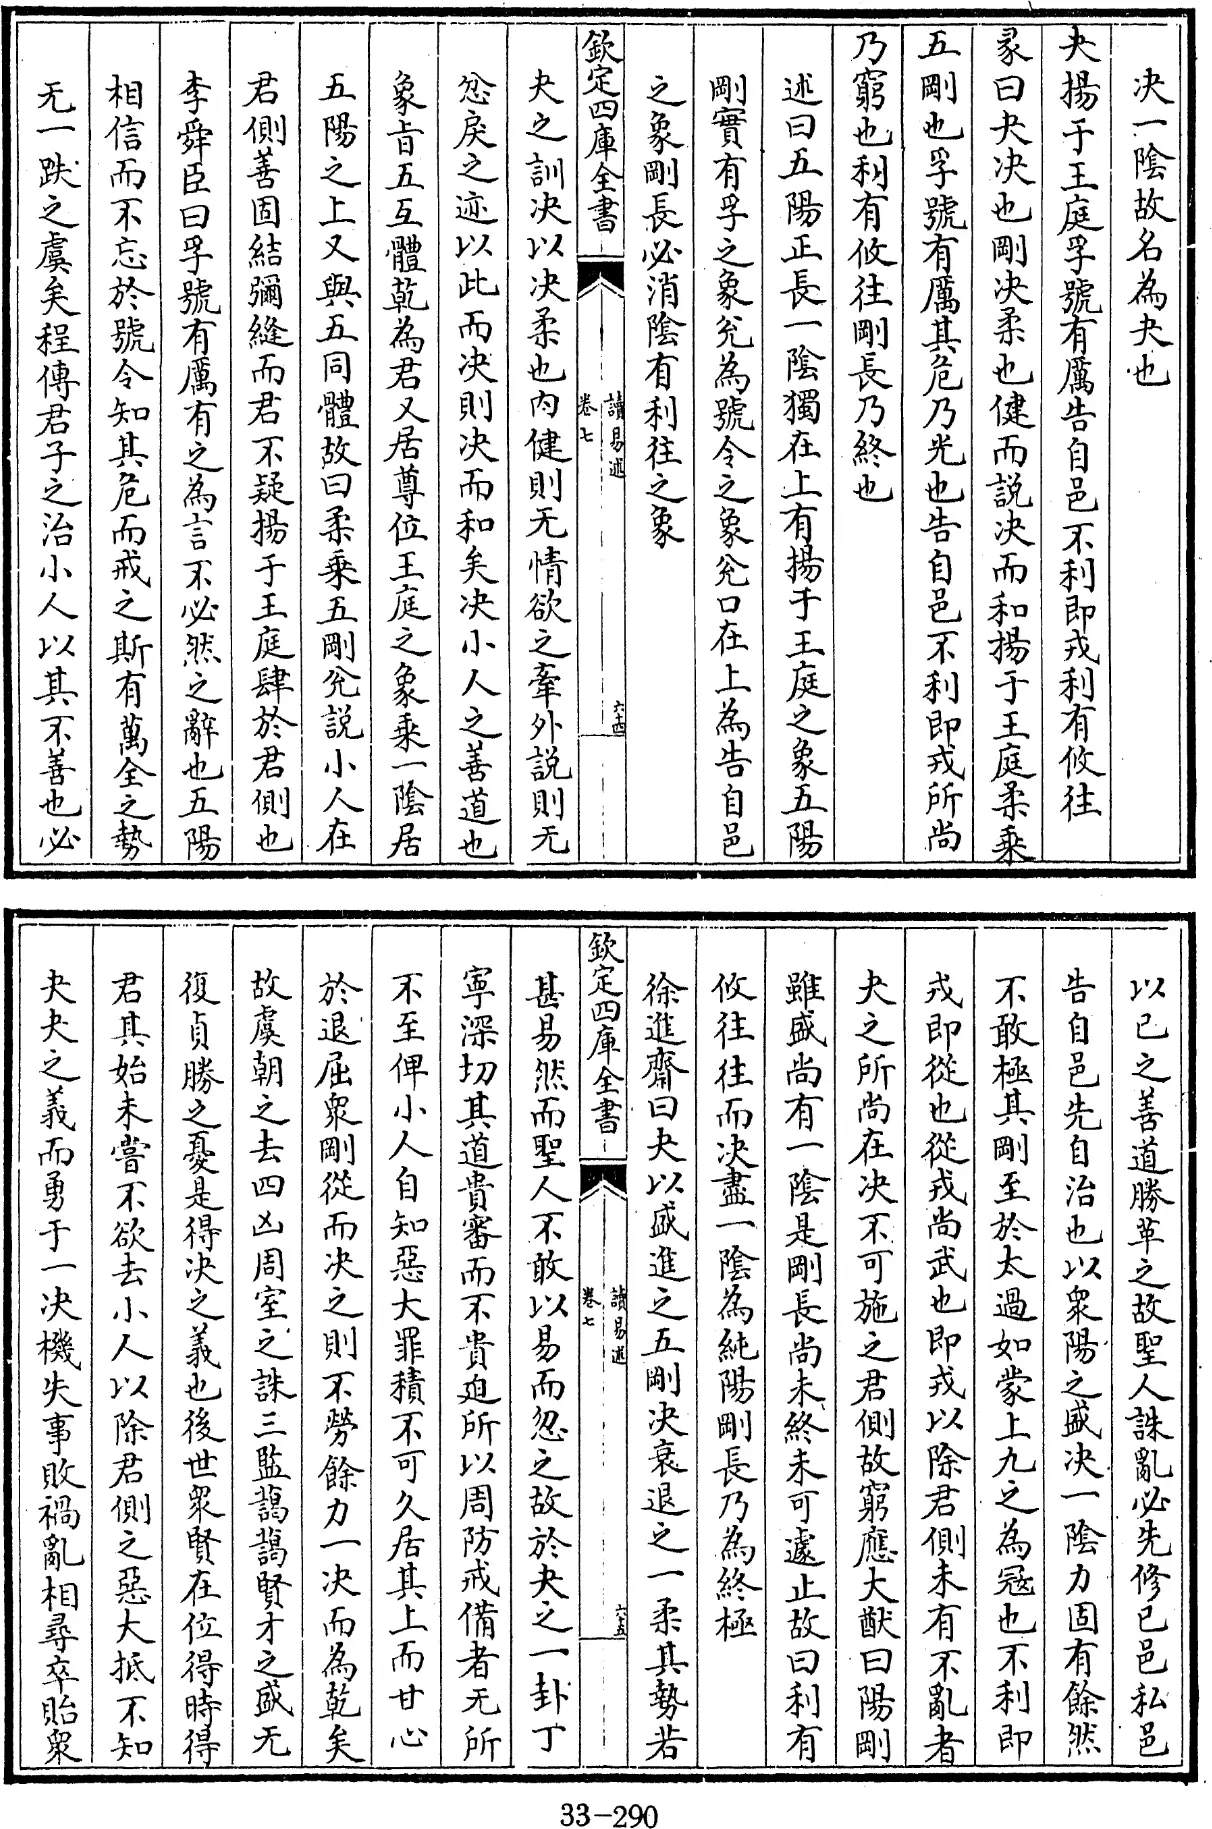 決一陰故名為夬也
夬揚于王庭孚號有厲告自邑不利即戎利有攸往
彖曰夬决也剛决柔也健而說决而和揚于王庭柔乘
五剛也孚號有厲其危乃光也告自邑不利即戎所尚
乃窮也利有攸往剛長乃終也
述曰五陽正長一陰獨在上有揚于王庭之象五陽
剛實有孚之象兊為號令之象兊口在上為告自邑
之象剛長必消陰有利往之象
欽定四庫全書
讀易述
卷七
六十四
夬之訓决以决柔也内健則无情欲之牽外說則无
忿戾之迹以此而决則决而和矣决小人之善道也
象旨五互體乾為君又居尊位王庭之象乘一陰居
五陽之上又與五同體故曰柔乘五剛兊說小人在
君側善固結彌縫而君不疑揚于王庭肆於君側也
李舜臣曰孚號有厲有之為言不必然之辭也五陽
相信而不忘於號令知其危而戒之斯有萬全之勢
无一跌之虞矣程傳君子之治小人以其不善也必
以已之善道勝革之故聖人誅亂必先修已邑私邑
告自邑先自治也以衆陽之盛决一陰力固有餘然
不敢極其剛至於太過如蒙上九之為宼也不利即
戎即從也從戎尚武也即戎以除君側未有不亂者
夬之所尚在决不可施之君側故窮應大猷曰陽剛
雖盛尚有一陰是剛長尚未終未可遽止故曰利有
攸往往而决盡一陰為純陽剛長乃為終極
徐進齋曰夬以盛進之五剛决衰退之一柔其勢若
欽定四庫全書
讀易述
卷七
六十五
甚易然而聖人不敢以易而忽之故於夬之一卦丁
寧深切其道貴審而不貴迫所以周防戒備者无所
不至俾小人自知惡大罪積不可久居其上而甘心
於退屈衆剛從而决之則不勞餘力一决而為乾矣
故虞朝之去四凶周室之誅三監藹藹賢才之盛无
復貞勝之憂是得决之義也後世衆賢在位得時得
君其始未嘗不欲去小人以除君側之惡大抵不知
夬夬之義而勇于一决機失事敗禍亂相尋卒貽衆
33-290